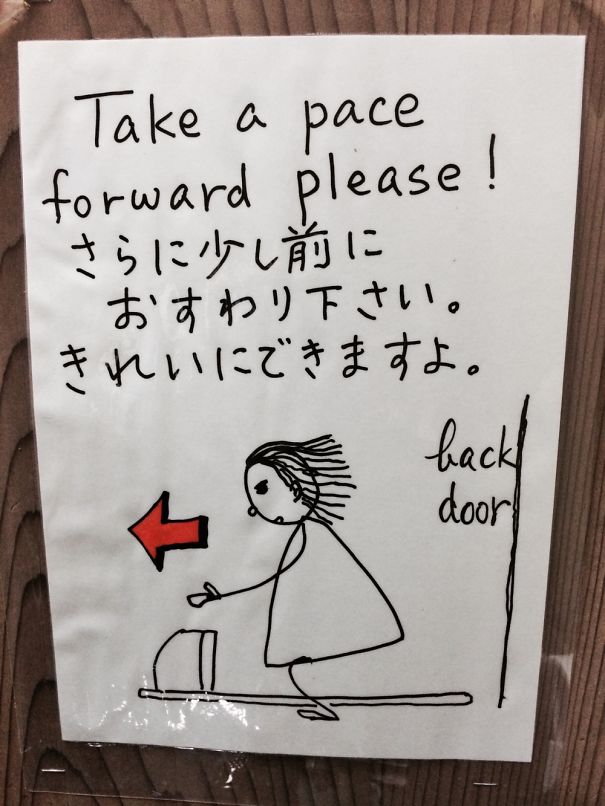 Take a pace
forward please!
さらに少し前に
おすわり下さい。
きれいにできますよ。
back
door